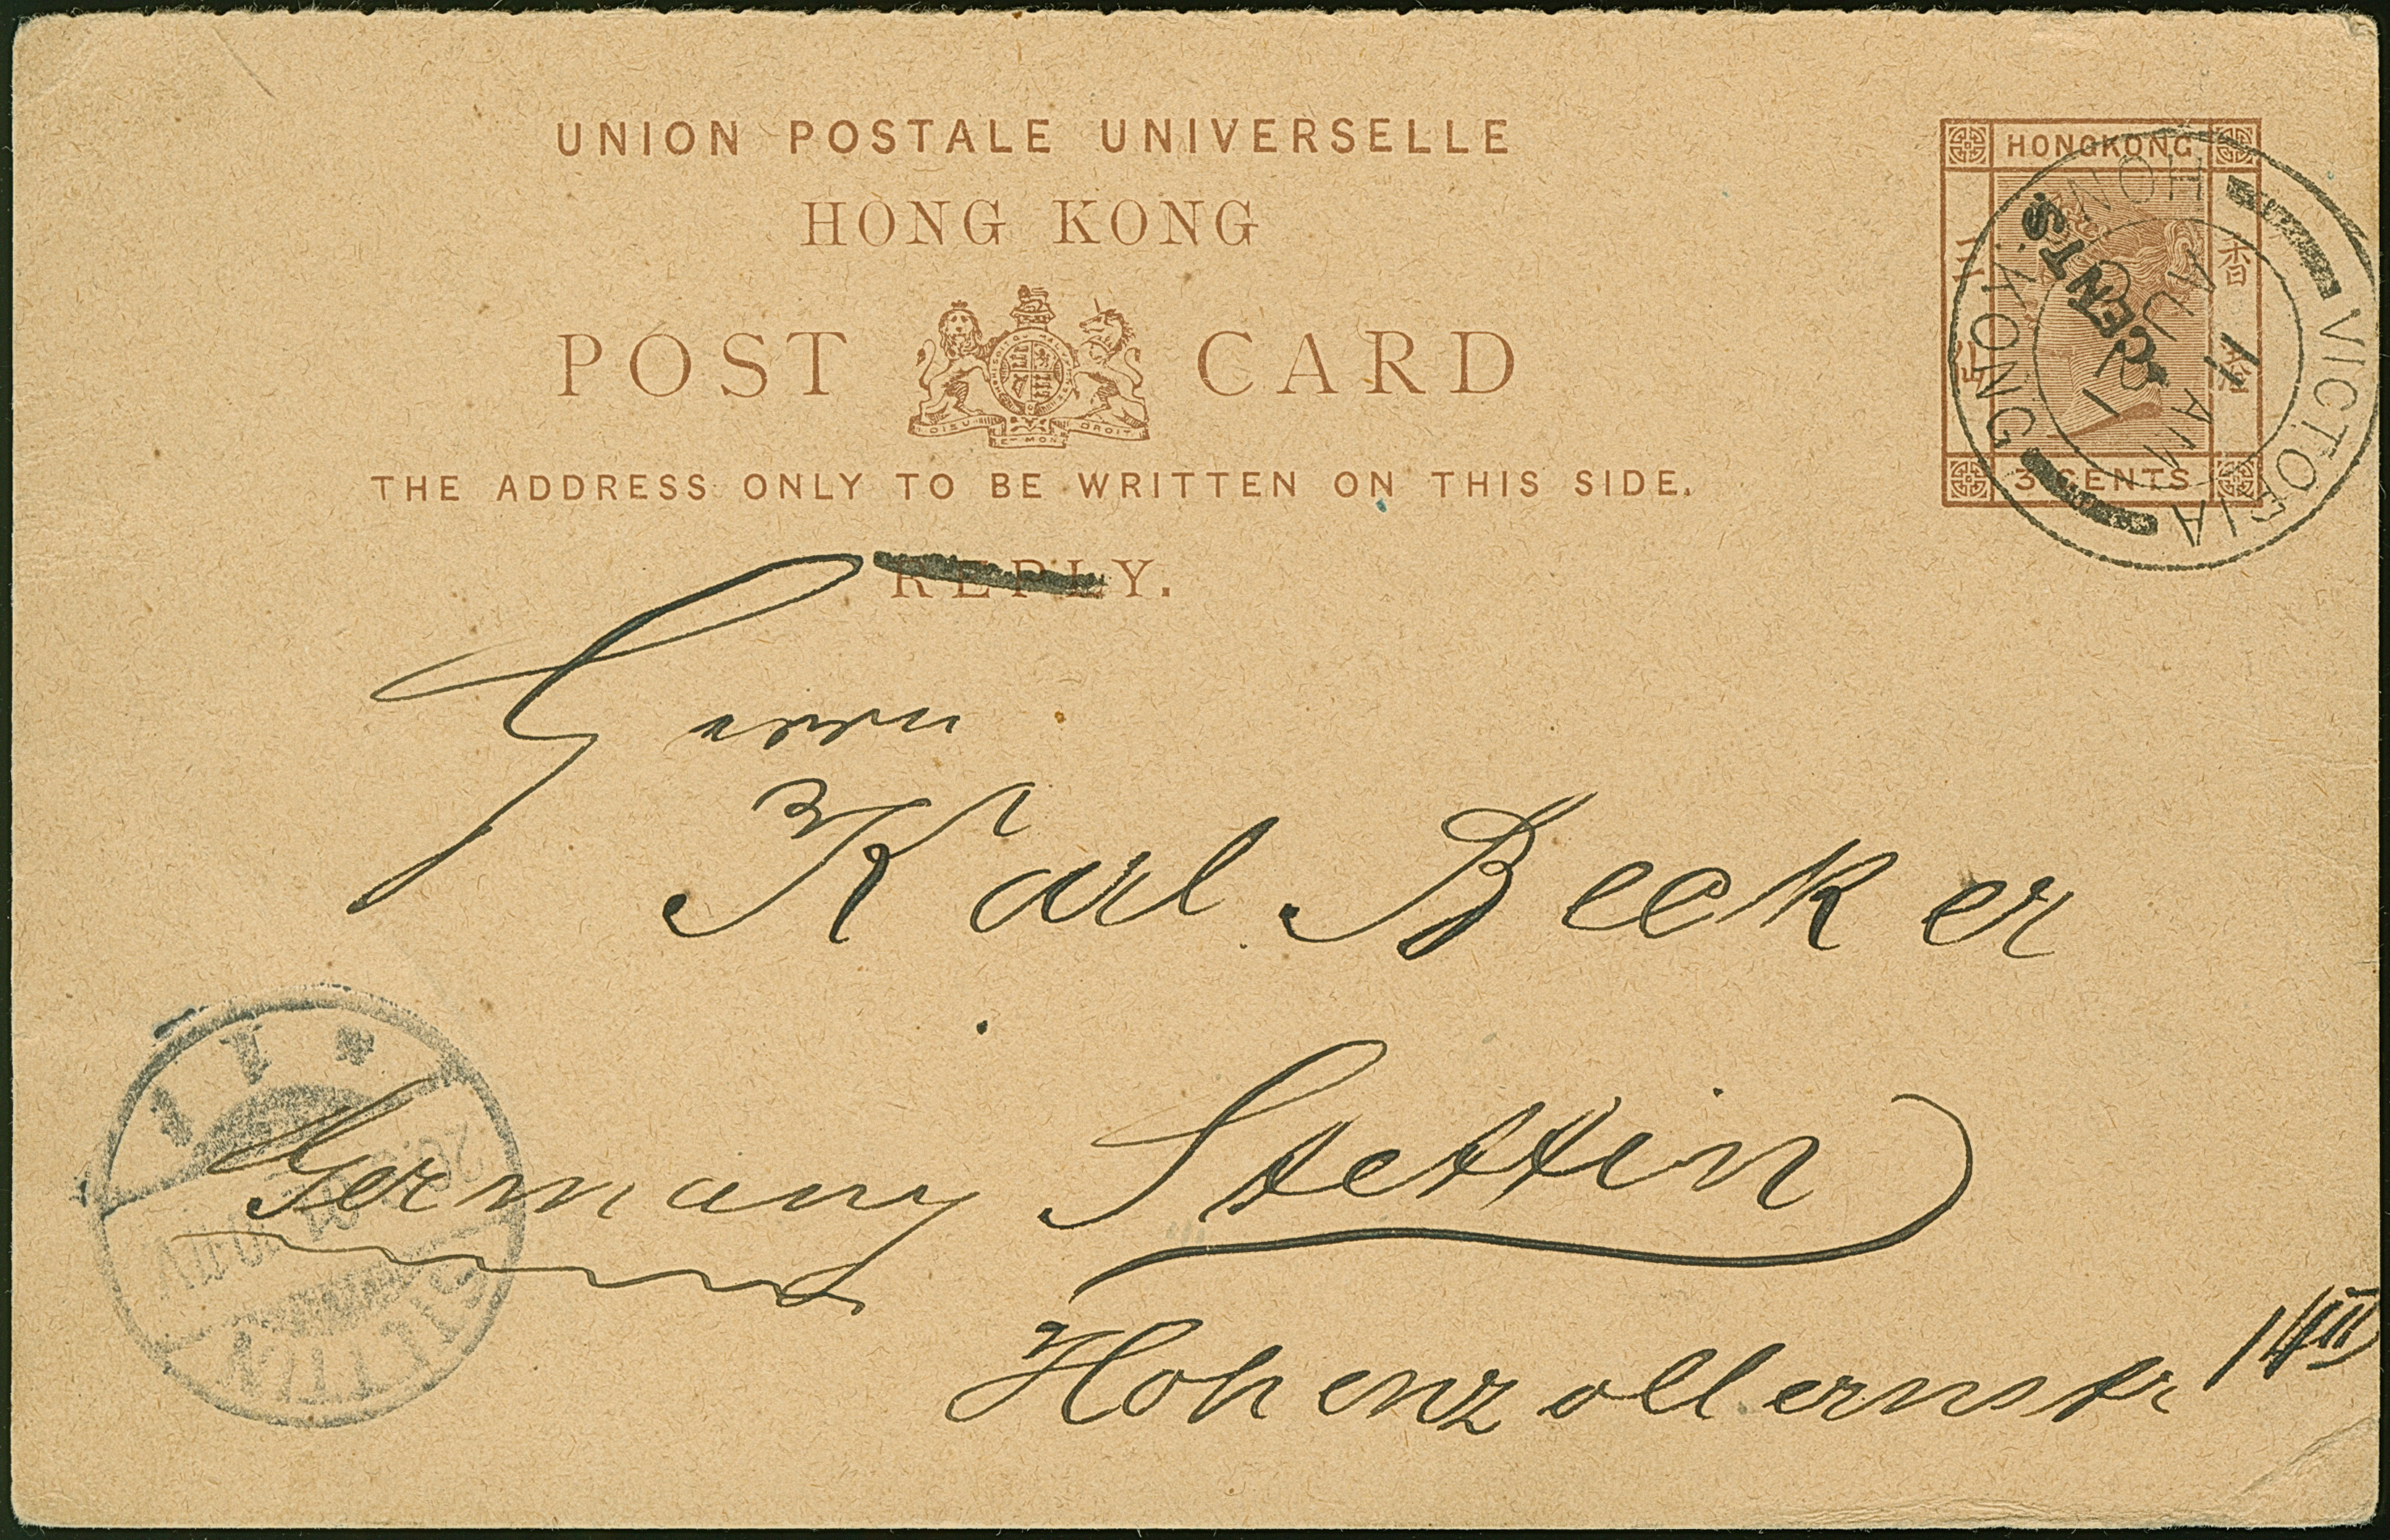 UNION POSTALE UNIVERSELLE
HONG KONG
POST CARD
DIEU ET MON DROIT
THE ADDRESS ONLY TO BE WRITTEN ON THIS SIDE.
REPLY.
HONGKONG
香港
三
3 CENTS
CENTS
VICTORIA
HONG KONG
11 AM
AU
Herrn
Karl Becker
Stettin
Germany
Hohenzollernstr
STETTIN
1